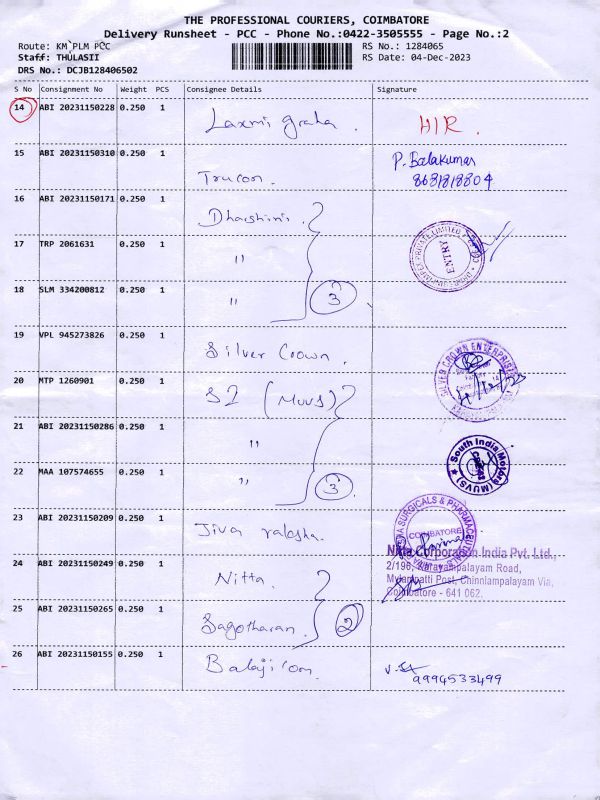 THE PROFESSIONAL COURIERS, COIMBATORE
Delivery Runsheet - PCC - Phone No.:0422-3505555 - Page No.:2
Route: KM PLM PCC
RS No.: 1284065
Staff: THULASII
RS Date: 04-Dec-2023
DRS No.: DCJB128406502
S No Consignment No Weight PCS Consignee Details Signature
14 ABI 20231150228 0.250 1 Laxmi graha . HIR .
15 ABI 20231150310 0.250 1 Trucon. P. Balakumar
8681818804
16 ABI 20231150171 0.250 1 Dharshini
17 TRP 2061631 0.250 1 "
ENTRY
18 SLM 334200812 0.250 1 " 3
19 VPL 945273826 0.250 1 Silver Crown .
SILVER CROWN ENTERPRISES
20 MTP 1260901 0.250 1 SI (MUVS)
4/12/23
21 ABI 20231150286 0.250 1 "
South India Motors
(MUVS)
22 MAA 107574655 0.250 1 " 3
23 ABI 20231150209 0.250 1 Jiva raksha.
SURGICALS & PHARMACEUTICALS
COIMBATORE
Nitta Corporation India Pvt. Ltd.,
24 ABI 20231150249 0.250 1 Nitta
2/196, Narayampalayam Road,
Mylampatti Post, Chinnlampalayam Via,
Coimbatore - 641 062.
25 ABI 20231150265 0.250 1 Sagotharan 2
26 ABI 20231150155 0.250 1 Balaji'om
9994533499